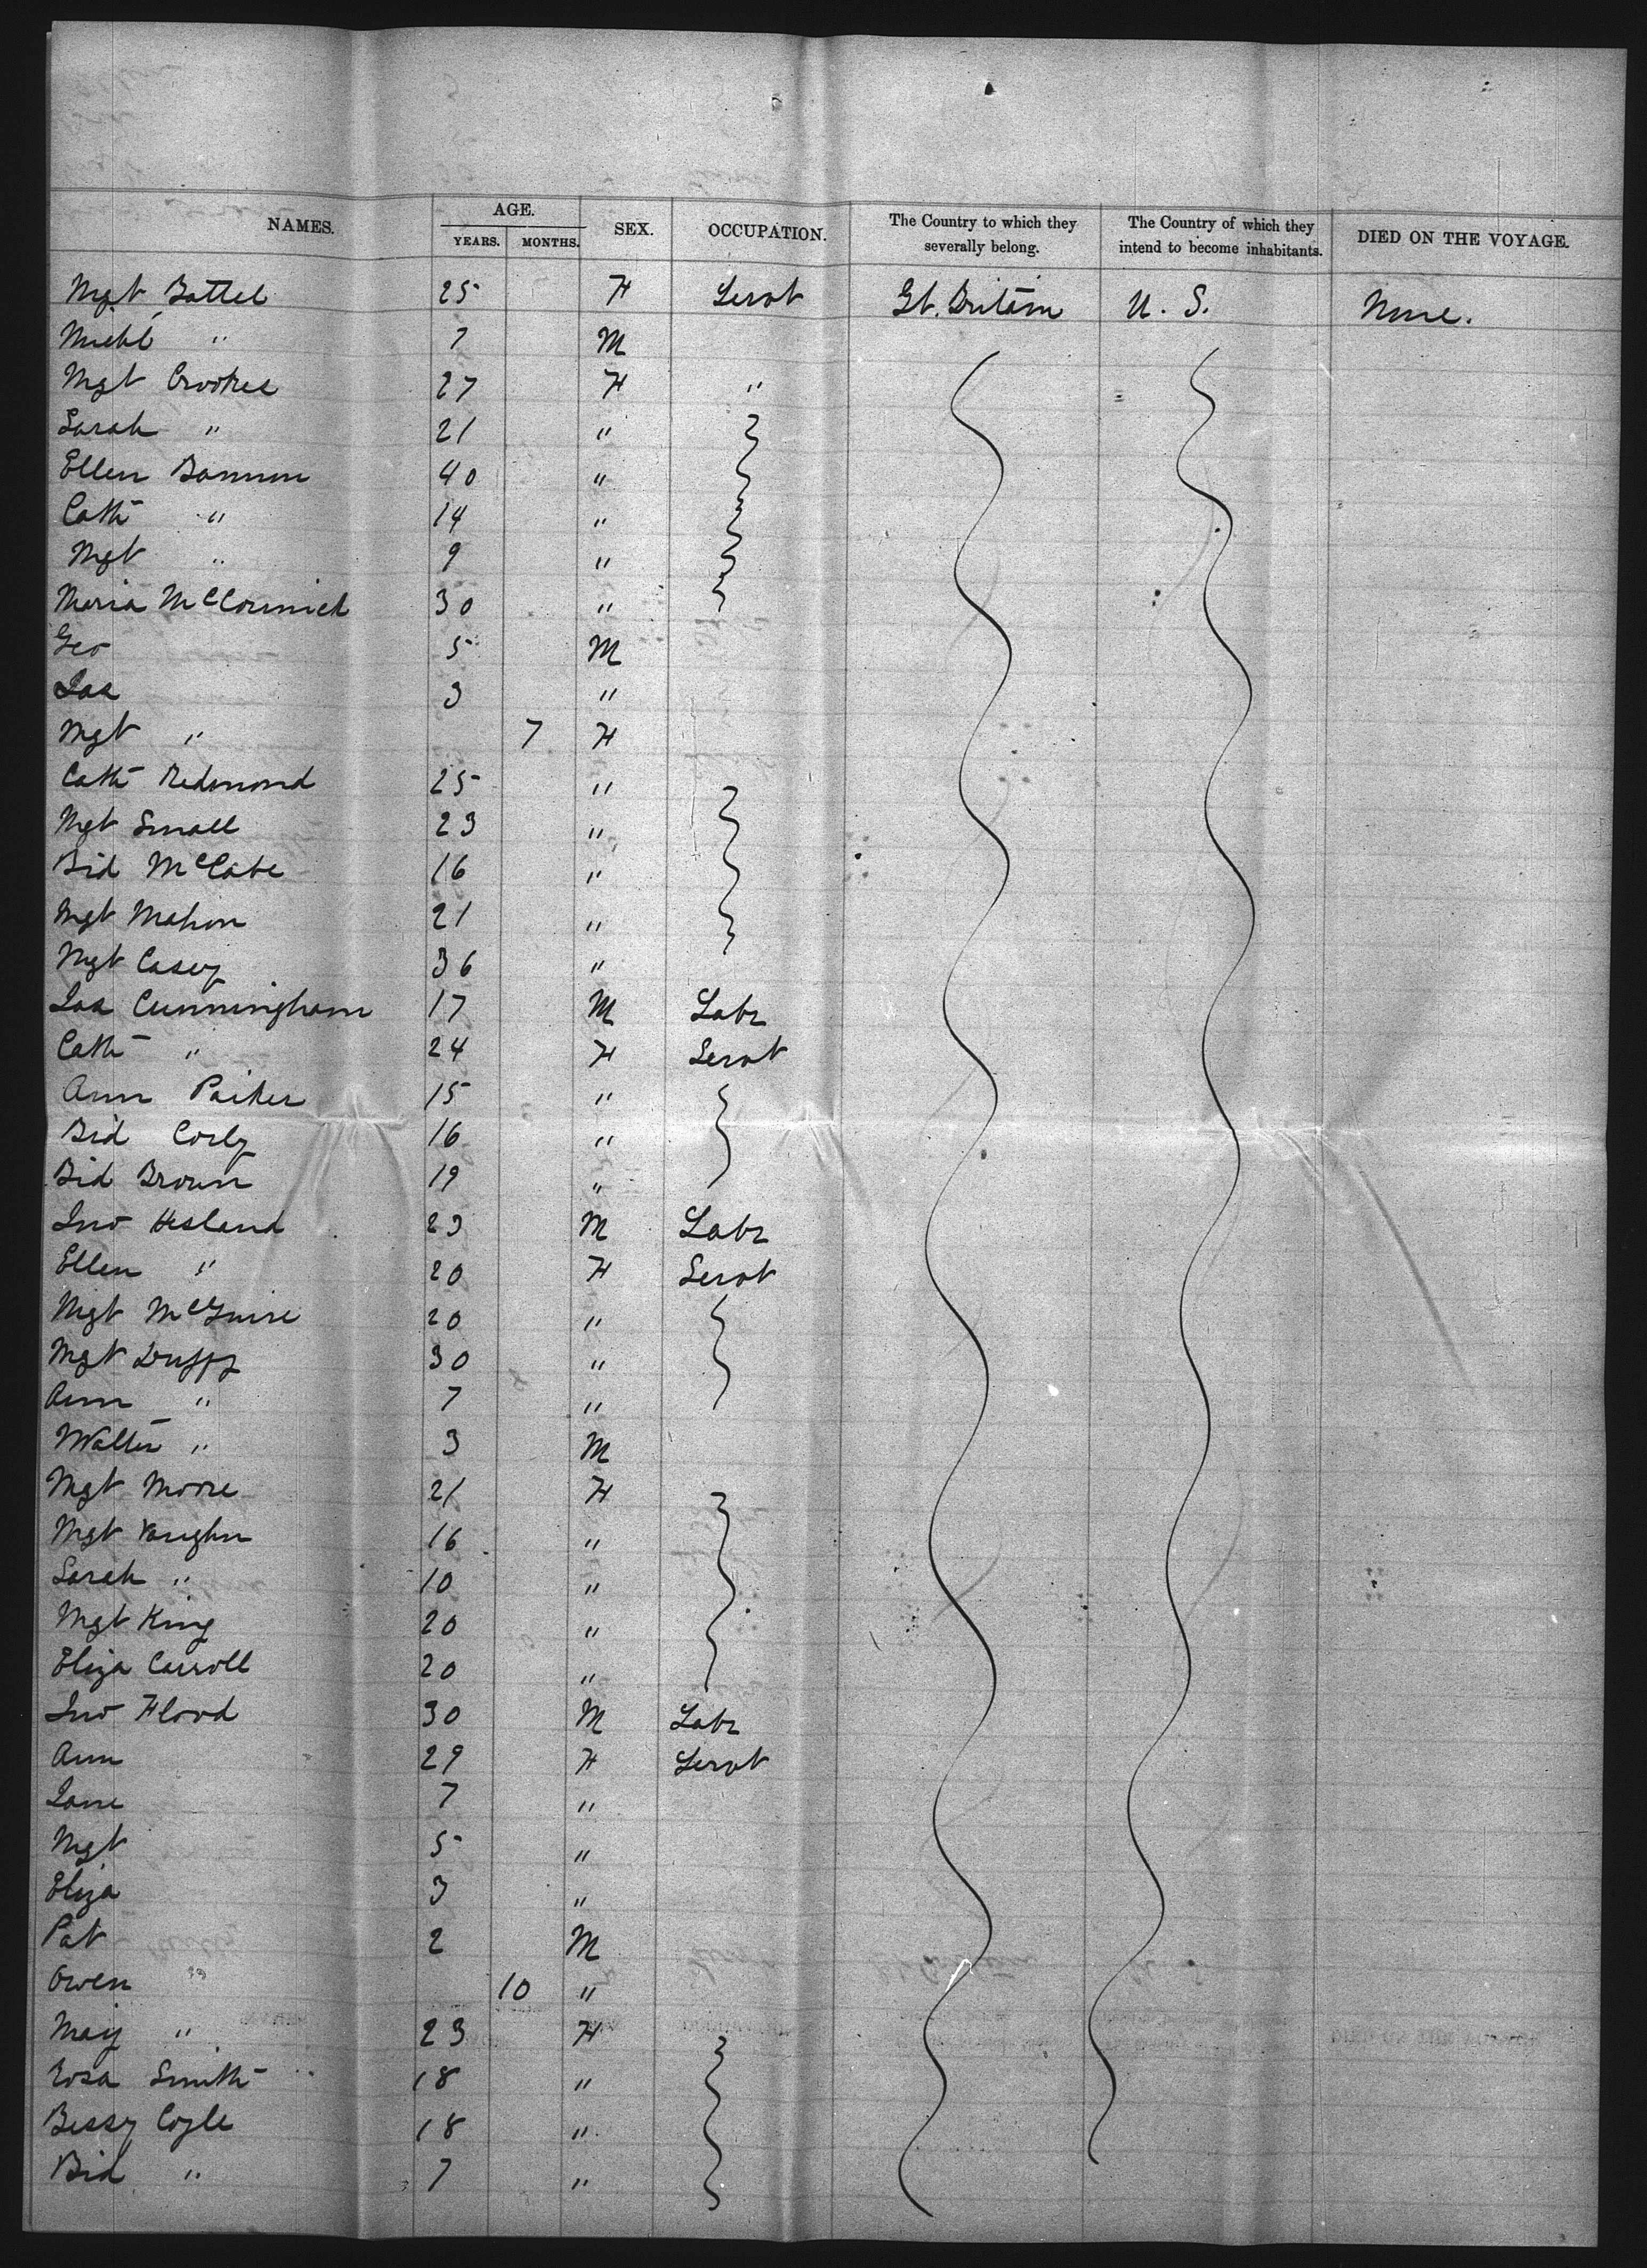 NAMES. AGE. YEARS. MONTHS. SEX. OCCUPATION. The Country to which they severally belong. The Country of which they intend to become inhabitants. DIED ON THE VOYAGE.
Mgt 25 F Servt Gt. Britain U. S. None.
Michl " 7 M
Mgt Crookes 27 F "
Sarah " 21 "
Ellen Bannon 40 "
Cath " 14 "
Mgt " 9 "
Maria McCormick 30 "
Geo 5 M
Jas 3 "
Mgt " 7 F
Cath Redmond 25 "
Mgt Small 23 "
Bid McCabe 16 "
Mgt Mahon 21 "
Mgt Casey 36 "
Jas Cunningham 17 M Labr
Cath " 24 F Servt
Ann 15 "
Bid 16 "
Bid Brown 19 "
Jno Hesland 23 M Labr
Ellen " 20 F Servt
Mgt McGuire 20 "
Mgt Duffy 30 "
Ann " 7 "
Walter " 3 M
Mgt Moore 21 F
Mgt Vaughn 16 "
Sarah " 10 "
Mgt King 20 "
Eliza Carroll 20 "
Jno Flood 30 M Labr
Ann 29 F Servt
Jane 7 "
Mgt 5 "
Eliza 3 "
Pat 2 M
Owen 10 "
Mary " 23 F
Rosa Smith 18 "
Bessy Coyle 18 "
Bid " 7 "